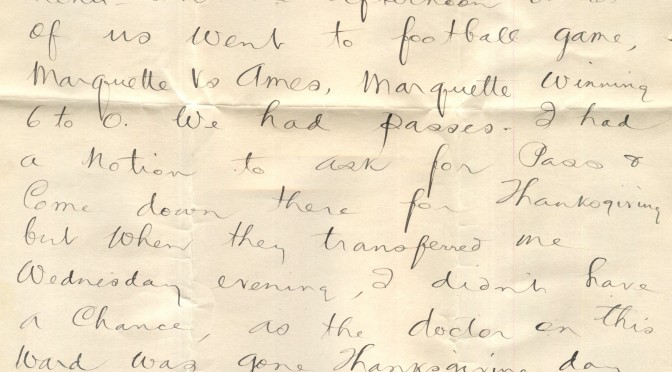 afternoon
of us went to football game,
Marquette Vs Ames, Marquette Winning
6 to 0. We had passes. I had
a Notion to ask for Pass &
Come down there for Thanksgiving
but When they transferred me
Wednesday evening, I didn't have
a Chance, as the doctor on this
Ward was gone Thanksgiving day